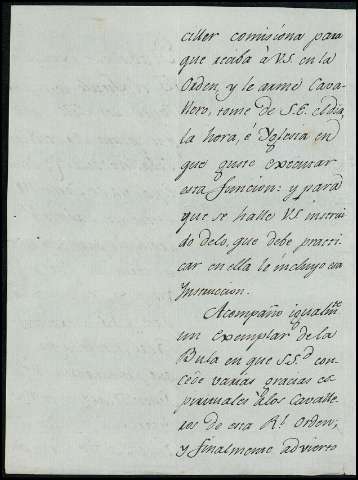 ciller comisiona para
que reciba à V.S. en la
Orden, y le arme Cava-
llero, tome de S.E. el dia,
la hora, é Yglesia en
que guste executar
esta funcion: y para
que se halle V.S. instrui-
do delo, que debe practi-
car en ella le incluyo esa
Instruccion.
Acompaño igualm.te
un exemplar de la
Bula en que S.S.d con-
cede varias gracias es-
pirituales à los Cavalle-
ros de esta R.l Orden;
y finalmente advierto